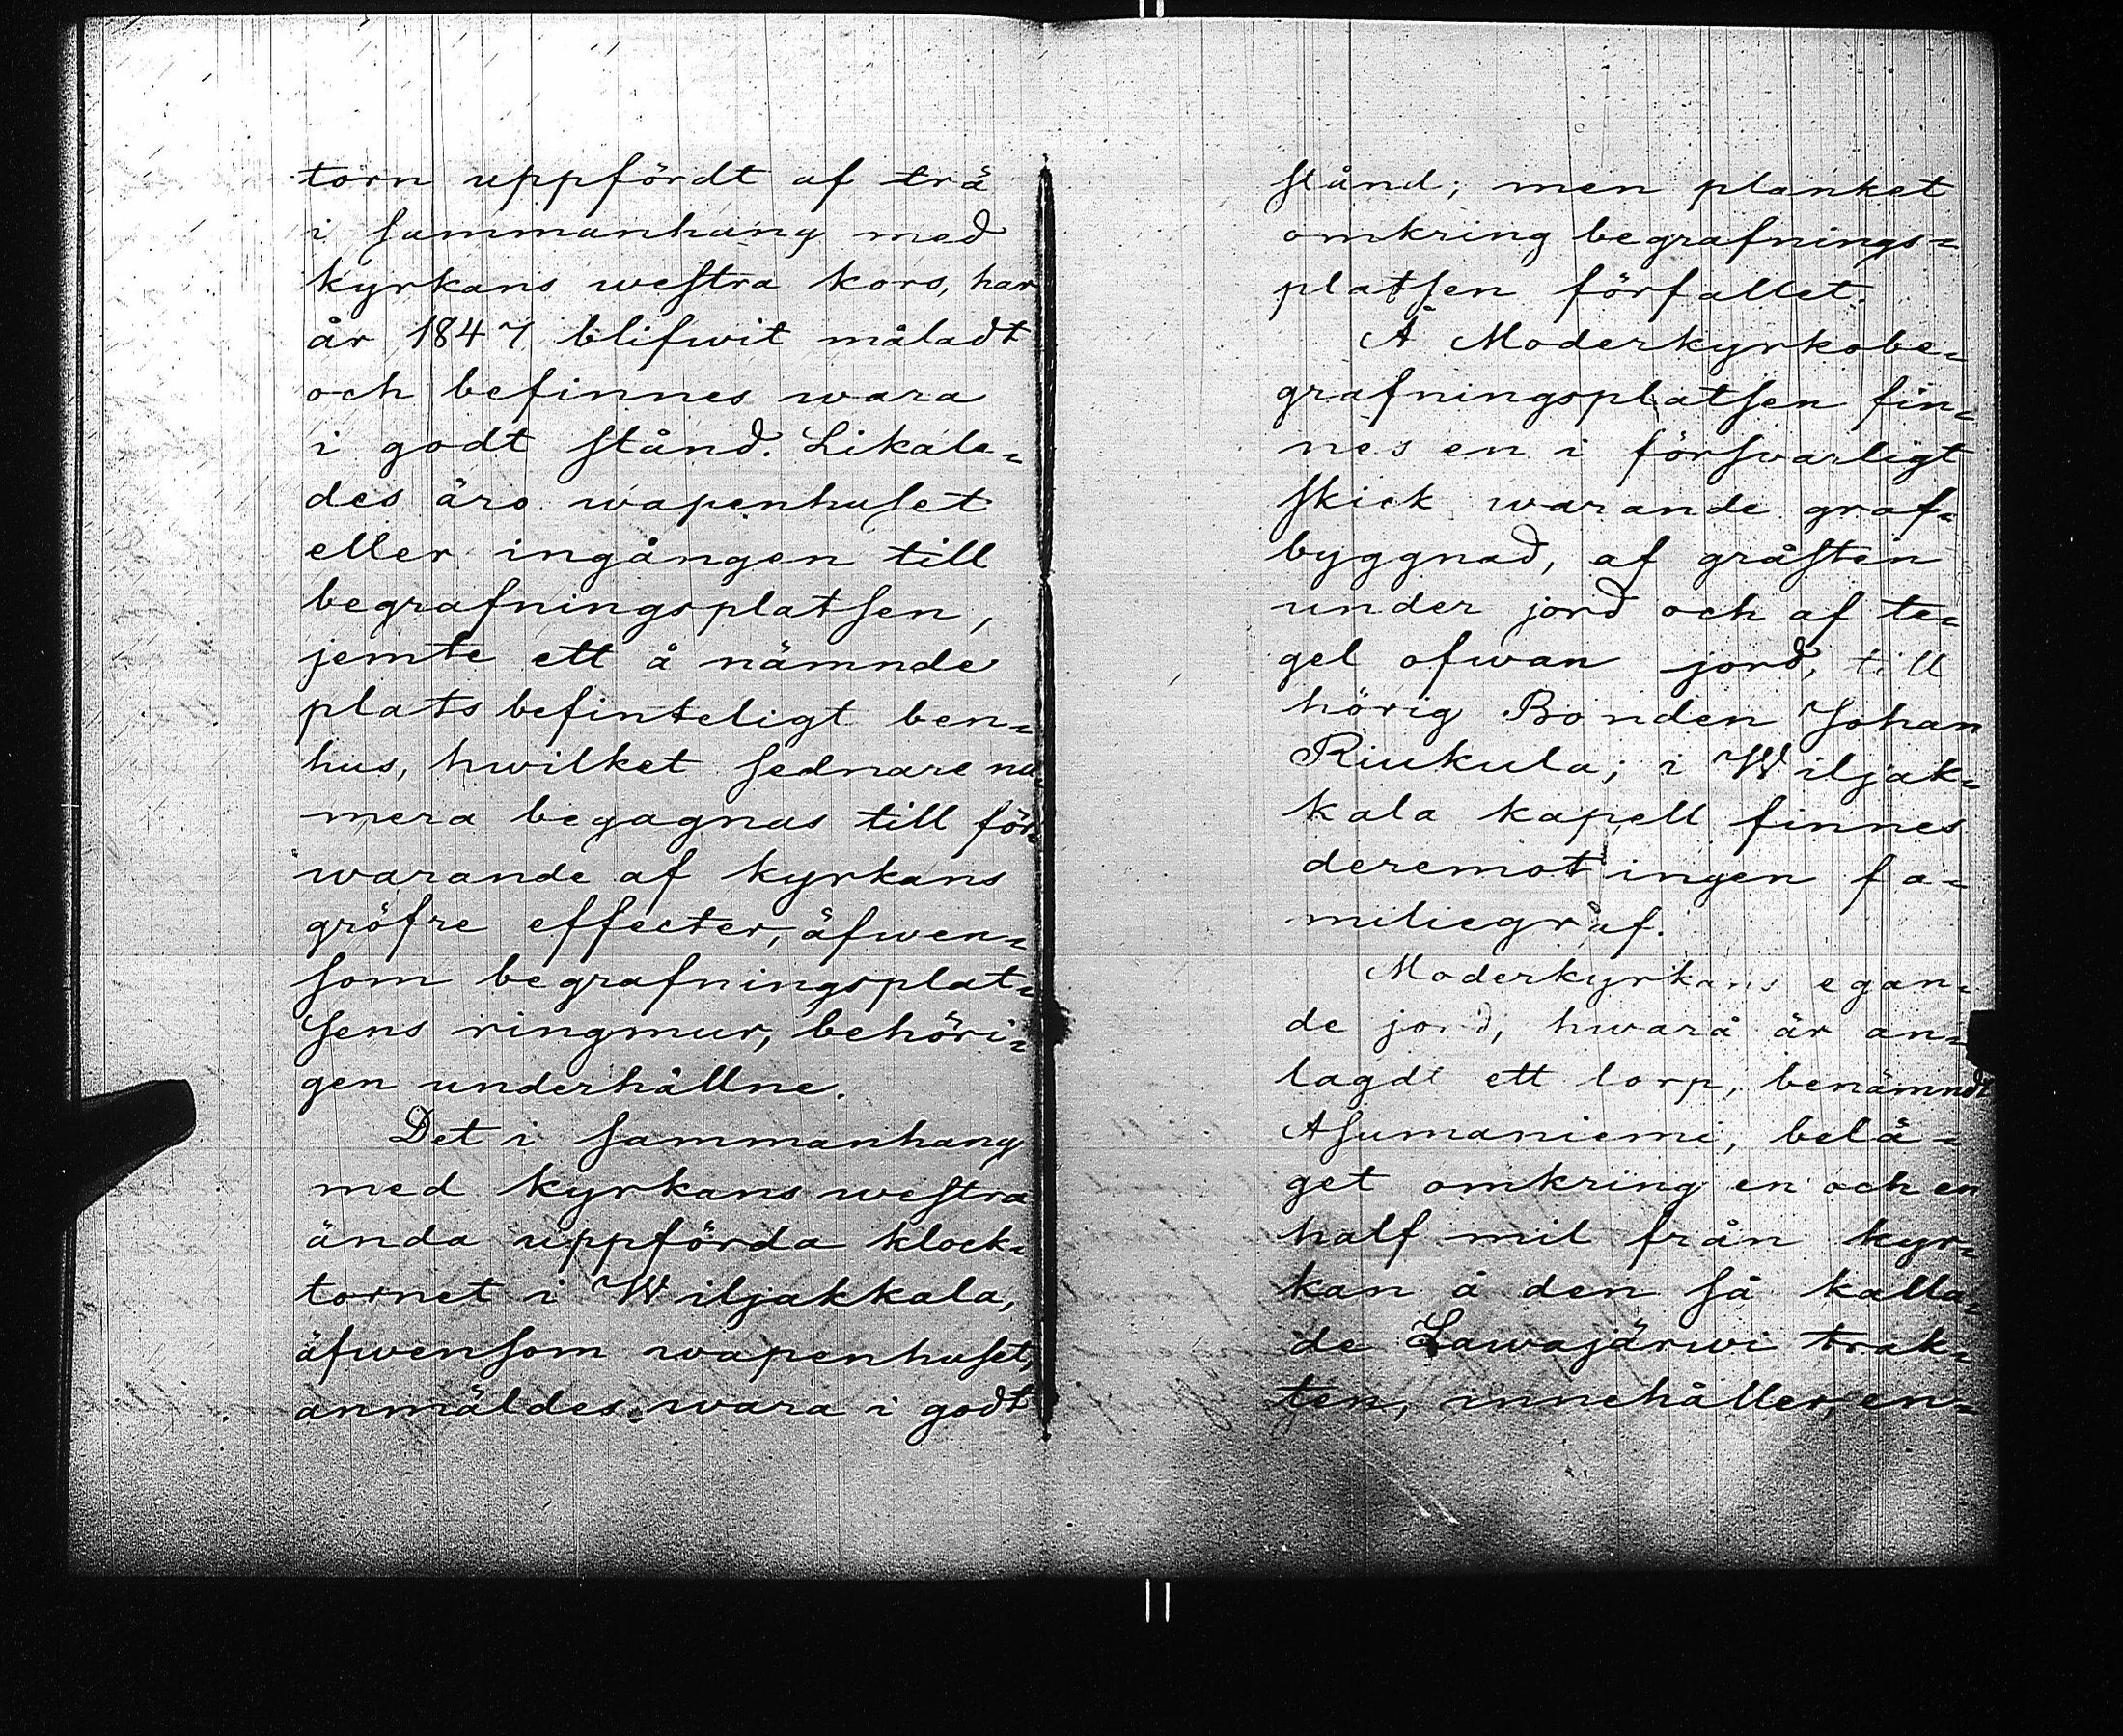 torn uppfördt af trä
i sammanhang med
kyrkans westra kors, har
år 1847 blifwit måladt
och befinnes wara
i godt stånd. Likale=
des äro wapenhuset
eller ingången till
begrafningsplatsen,
jemte ett å nämnde
plats befinteligt ben=
hus, hwilket sednare nu=
mera begagnas till för=
warande af kyrkans
gröfre effecter, äfwen=
som begrafningsplat=
sens ringmur, behöri=
gen underhållne.
Det i sammanhang
med kyrkans westra
ända uppförda klock=
tornet i Wiljakkala,
äfwensom wapenhuset,
anmäldes wara i godt
stånd; men planket
omkring begrafnings=
platsen förfallet.
Å Moderkyrkobe=
grafningsplatsen fin=
nes en i försvarligt
skick warande graf=
byggnad, af gråsten
under jord och af te=
gel ofwan jord, till
hörig Bonden Johan
Riukula; i Wiljak=
kala kapell finnes
deremot ingen fa=
miliegraf.
Moderkyrkans egan=
de jord, hwarå är an=
lagdt ett torp, benämndt
Asumaniemi, belä=
get omkring en och en
half mil från kyr=
kan å den så kalla=
de Lawajärwi trak=
ten, innehåller, en=